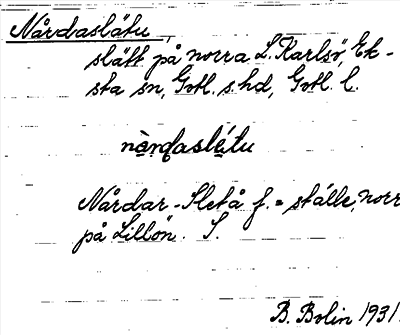 Nårdaslätu,
slätt på norra L. Karlsö, Ek-
sta sn, Gotl. s. hd, Gotl. l.
nàrdaslétu
Nårdar-Sletå f. = ställe norr
på Lillön. S.
B. Bolin 1931.